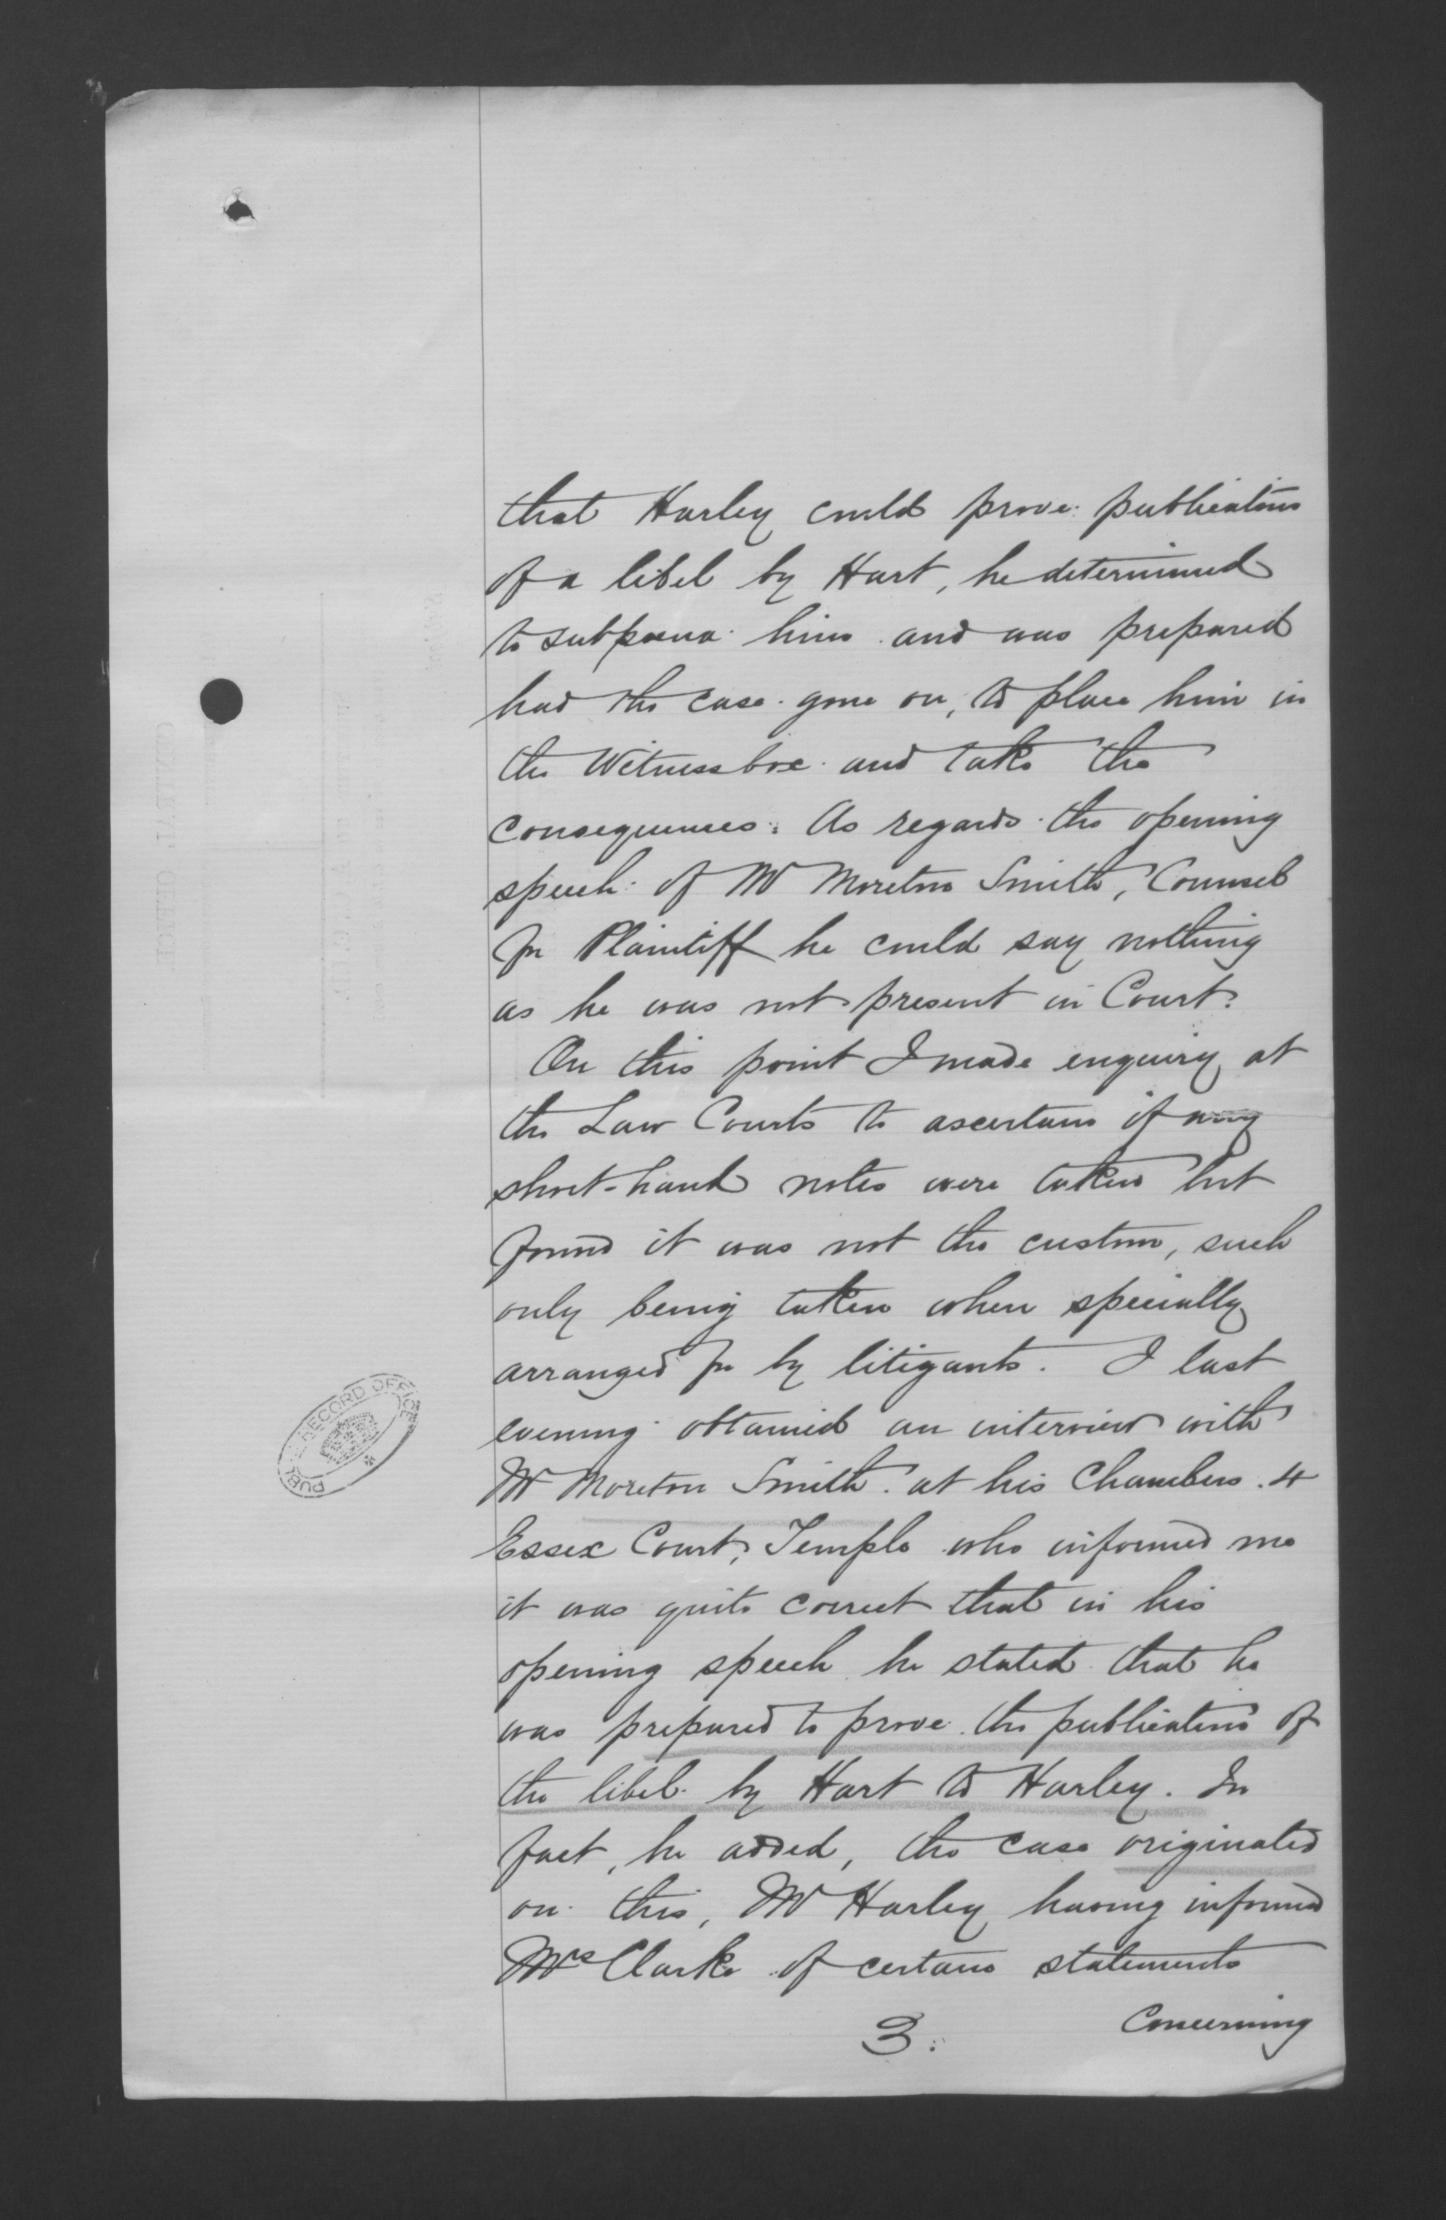 that Harley could prove publication
of a libel by Hart, he determined
to subpoena him and was prepared
had the case gone on, to place him in
the Witness box and take the
consequences. As regards the opening
speech of Mr Moreton Smith, Counsel
for Plaintiff he could say nothing
as he was not present in Court.
On this point I made enquiry at
the Law Courts to ascertain if any
short-hand notes were taken but
found it was not the custom, such
only being taken when specially
arranged for by litigants. I last
evening obtained an interview with
Mr Moreton Smith at his Chambers. 4
Essex Court, Temple who informed me
it was quite correct that in his
opening speech he stated that he
was prepared to prove the publication of
the libel by Hart to Harley. In
fact, he added, the case originated
on this, Mr Harley having informed
Mrs Clarke of certain statements
3. Concerning
PUBLIC RECORD OFFICE